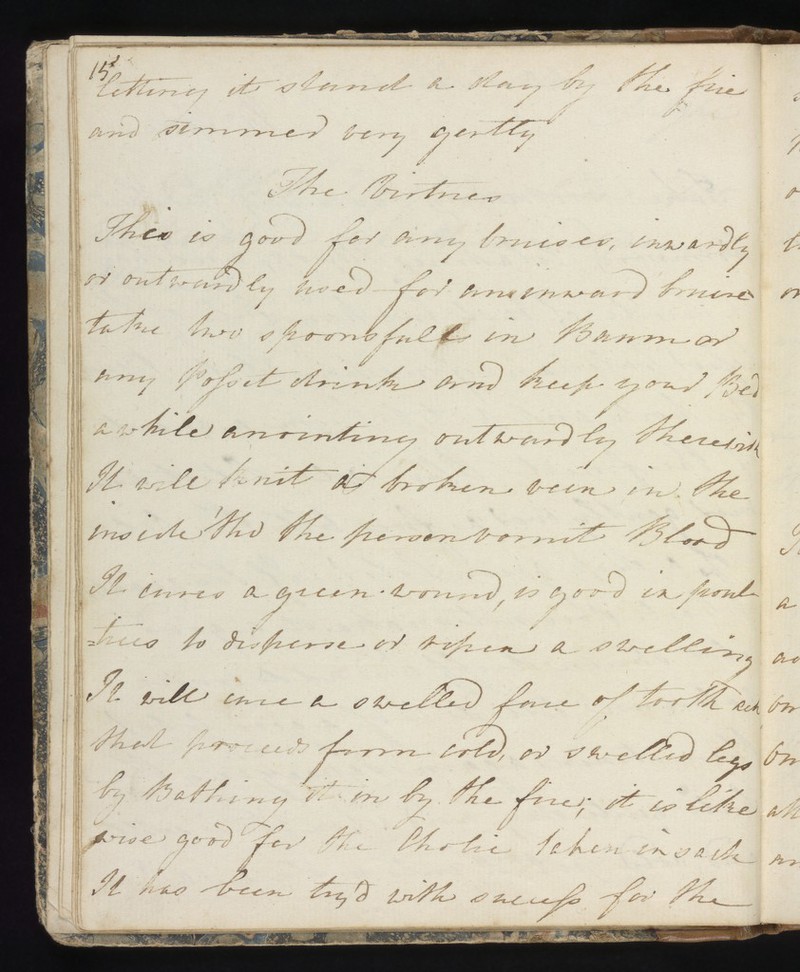 15
letting it stand a day by the fire
and simmer'd very gently
The Virtues
This is good for any bruises, inwardly
or outwardly used for an inward bruise
take two spoonsfull in Baum or
any Posset drink and keep your Bed
a while anointing outwardly therewith
It will knit a broken vein in the
inside tho' the person vomit Blood
It cures a green wound, is good in poul
=tises to disperse or ripen a swelling
It will cure a swelled face of tooth ach
that proceeds from cold, or swelled legs
by Bathing it in by the fire; it is like
wise good for the Cholic taken in sack
It has been try'd with success for the